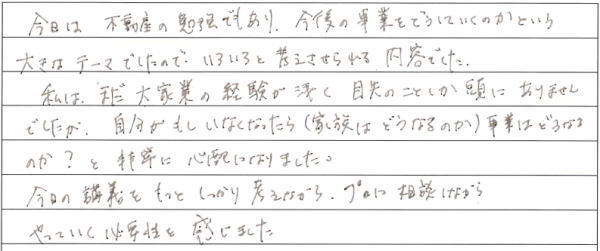 今日は 不動産の勉強でもあり、今後の事業をどうしていくのかという
大きなテーマでしたので いろいろと考えさせられる内容でした。
私は、まだ大家業の経験が浅く 目先のことしか頭にありません
でしたが、自分がもしいなくなったら(家族はどうなるのか)事業はどうなる
のか?と非常に心配になりました。
今日の講義をもっとしっかり考えながら、プロに相談しながら
やっていく必要性を感じました